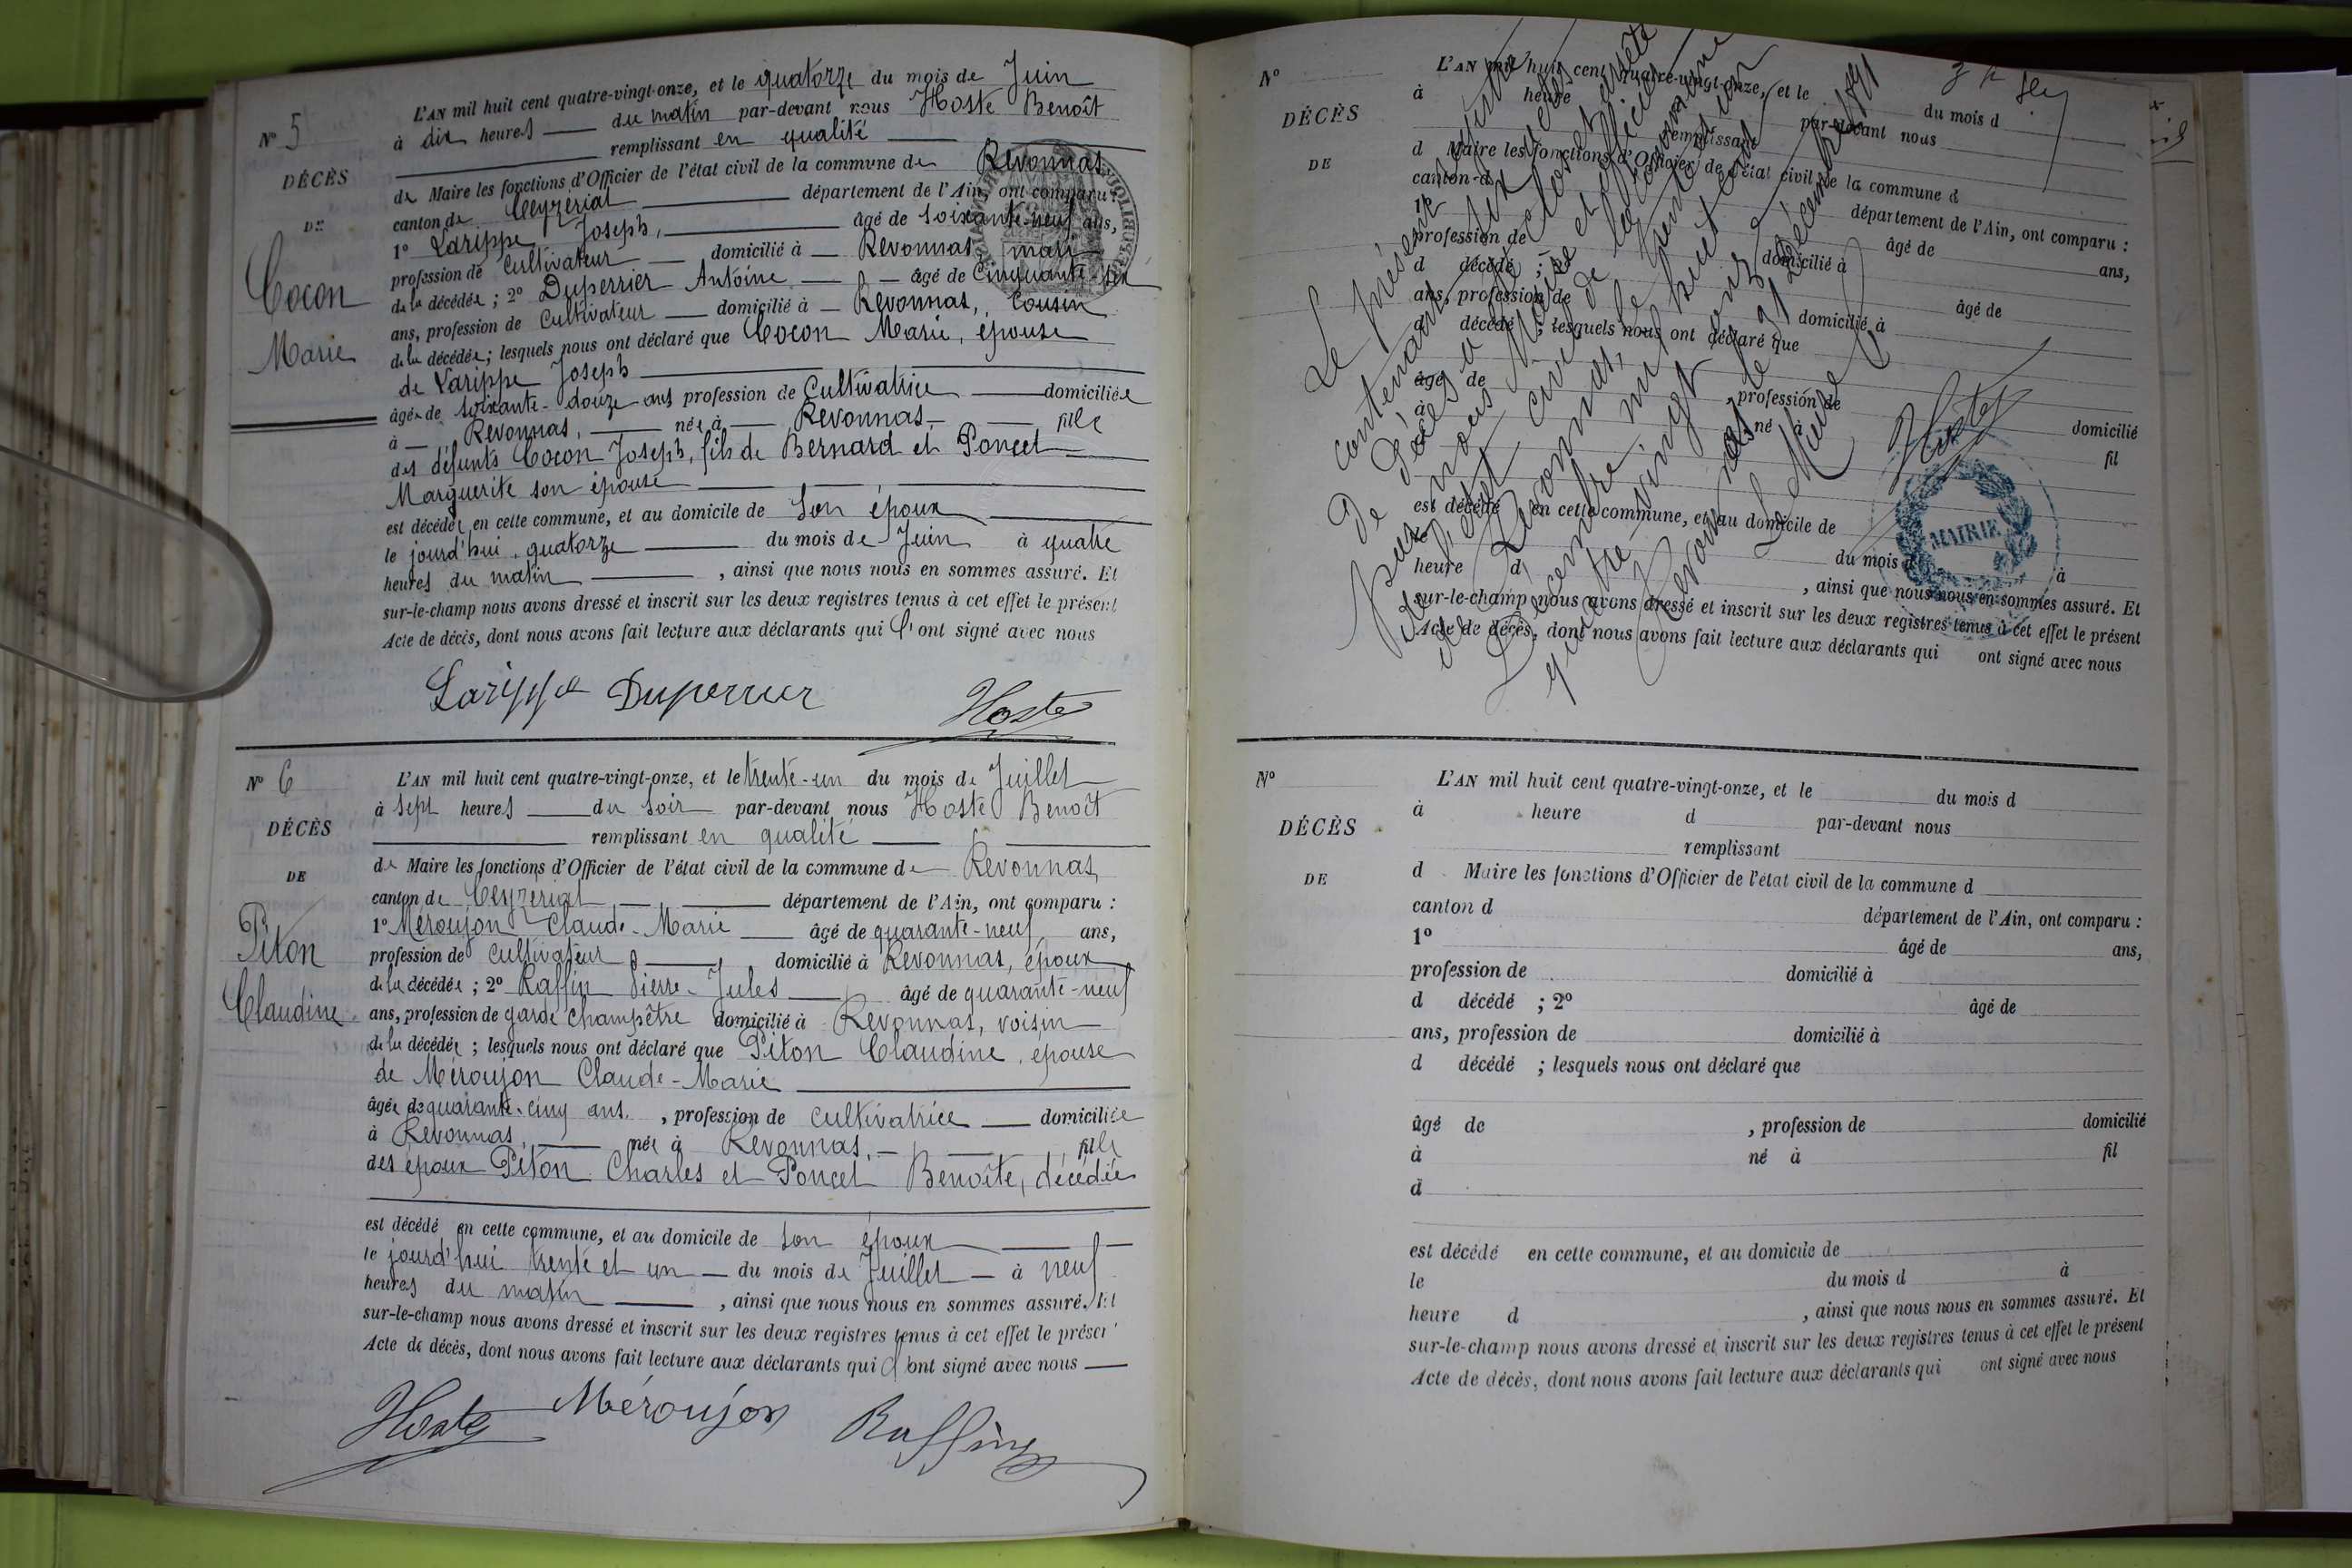 N° 5
DÉCÈS
DE
Cocon
Marie
L'AN mil huit cent quatre-vingt-onze, et le quatorze du mois de Juin
à dix heures du matin par-devant nous Hoste Benoît
remplissant en qualité
de Maire les fonctions d'Officier de l'état civil de la commune de Revonnas
canton de Ceyzériat département de l'Ain, ont comparu :
1° Larippe Joseph, âgé de soixante-neuf ans,
profession de cultivateur domicilié à Revonnas mari
de la décédée ; 2° Duperrier Antoine âgé de Cinquante-six
ans, profession de Cultivateur domicilié à Revonnas, Cousin
de la décédée ; lesquels nous ont déclaré que Cocon Marie, épouse
de Larippe Joseph
âgée de soixante-douze ans profession de Cultivatrice domiciliée
à Revonnas, née à Revonnas, fille
des défunts Cocon Joseph, fils de Bernard et Poncet
Marguerite son épouse
est décédée en cette commune, et au domicile de son époux
le jourd'hui quatorze du mois de Juin à quatre
heures du matin , ainsi que nous nous en sommes assuré. Et
sur-le-champ nous avons dressé et inscrit sur les deux registres tenus à cet effet le présent
Acte de décès, dont nous avons fait lecture aux déclarants qui l'ont signé avec nous
Larippe Duperrier
Hoste
N° 6
DÉCÈS
DE
Piton
Claudine
L'AN mil huit cent quatre-vingt-onze, et le trente-un du mois de Juillet
à sept heures du soir par-devant nous Hoste Benoît
remplissant en qualité
de Maire les fonctions d'Officier de l'état civil de la commune de Revonnas
canton de Ceyzériat département de l'Ain, ont comparu :
1° Méroujon Claude-Marie âgé de quarante-neuf ans,
profession de cultivateur domicilié à Revonnas, époux
de la décédée ; 2° Raffin Pierre-Jules âgé de quarante-neuf
ans, profession de garde champêtre domicilié à Revonnas, voisin
de la décédée ; lesquels nous ont déclaré que Piton Claudine, épouse
de Méroujon Claude-Marie
âgée de quarante-cinq ans, profession de cultivatrice domiciliée
à Revonnas, née à Revonnas, fille
des époux Piton Charles et Poncet Benoîte, décédée
est décédé en cette commune, et au domicile de son époux
le jourd'hui trente et un du mois de Juillet à neuf
heures du matin , ainsi que nous nous en sommes assuré. Et
sur-le-champ nous avons dressé et inscrit sur les deux registres tenus à cet effet le présent
Acte de décès, dont nous avons fait lecture aux déclarants qui ont signé avec nous
Hoste Méroujon Raffin
N°
DÉCÈS
DE
L'AN mil huit cent quatre-vingt-onze, et le du mois d
à heure par-devant nous
remplissant
d Maire les fonctions d'Officier de l'état civil de la commune d
canton d département de l'Ain, ont comparu :
1° âgé de ans,
profession de domicilié à
d décédé ; âgé de
ans, profession de domicilié à
d décédé ; lesquels nous ont déclaré que
âgé de , profession de domicilié
à né à fil
est décédé en cette commune, et au domicile de
du mois d à
heure d , ainsi que nous nous en sommes assuré. Et
sur-le-champ nous avons dressé et inscrit sur les deux registres tenus à cet effet le présent
Acte de décès, dont nous avons fait lecture aux déclarants qui ont signé avec nous
Le présent registre
contenant six actes
de Décès a été clos et arrêté
par nous Maire et officier
de l'état civil de la commune
de Revonnas, le trente et un
Décembre mil huit cent
quatre-vingt onze
Revonnas le 31 Décembre 1891
Le Maire
Hoste
MAIRIE
N°
DÉCÈS
DE
L'AN mil huit cent quatre-vingt-onze, et le du mois d
à heure d par-devant nous
remplissant
d Maire les fonctions d'Officier de l'état civil de la commune d
canton d département de l'Ain, ont comparu :
1° âgé de ans,
profession de domicilié à
d décédé ; 2° âgé de
ans, profession de domicilié à
d décédé ; lesquels nous ont déclaré que
âgé de , profession de domicilié
à né à fil
d
est décédé en cette commune, et au domicile de
le du mois d à
heure d , ainsi que nous nous en sommes assuré. Et
sur-le-champ nous avons dressé et inscrit sur les deux registres tenus à cet effet le présent
Acte de décès, dont nous avons fait lecture aux déclarants qui ont signé avec nous